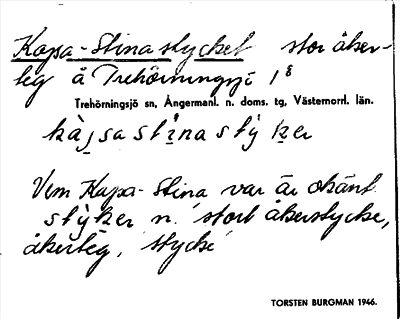 Kapa-Stinastycket stor åker-
teg å Trehörningsjö 1⁸
Trehörningsjö sn, Ångermanl. n. doms. tg, Västernorrl. län.
Vem Kapa-Stina var är okänt
n. stort åkerstycke,
åkerteg, stycke
TORSTEN BURGMAN 1946.